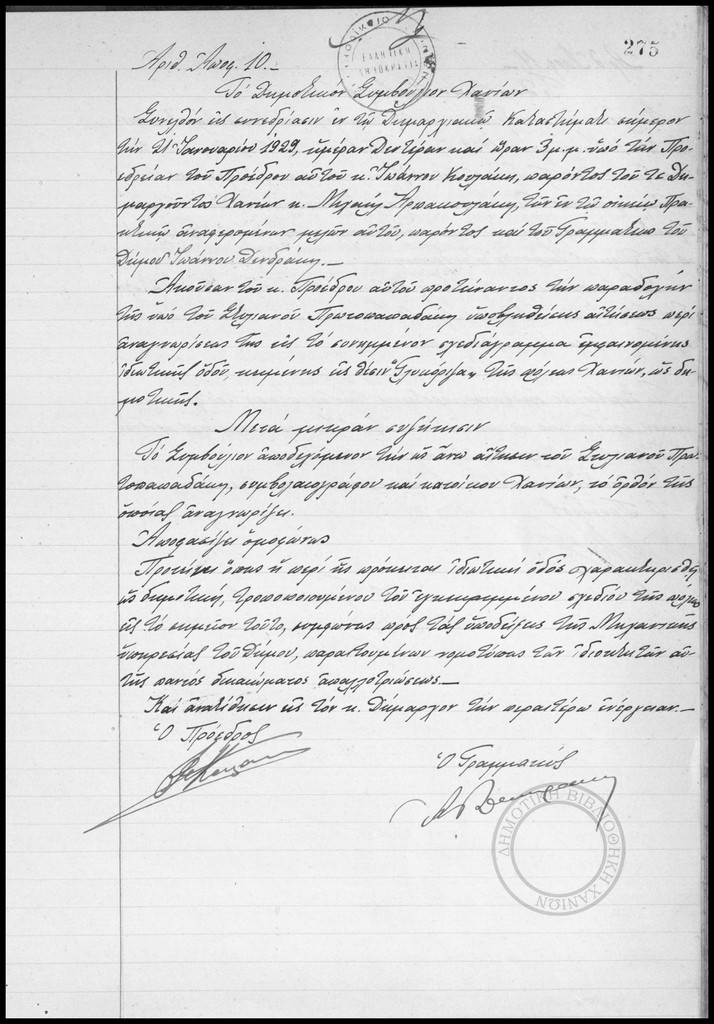 275
ΕΛΛΗΝΙΚΗ
Ἀριθ. Ἀποφ. 10.—
Τό Δημοτικόν Συμβούλιον Χανίων
Συνελθόν εἰς συνεδρίασιν ἐν τῷ Δημαρχιακῷ Καταστήματι σήμερον
τήν Ἰανουαρίου 1929, ἡμέραν Δευτέραν καί ὥραν 3 μ.μ. ὑπό τήν Προ-
εδρείαν τοῦ Προέδρου αὐτοῦ κ. Ἰωάννου παρόντος τοῦ τε Δη-
μαρχοῦντος Χανίων κ. Μιχαήλ τῶν ἐν τῷ οἰκείῳ Πρα-
κτικῷ ἀναφερομένων μελῶν αὐτοῦ, παρόντος καί τοῦ Γραμματέως τοῦ
Δήμου Ἰωάννου Δενδράκη.—
Ἀκοῦσαν τοῦ κ. Προέδρου αὐτοῦ προτείναντος τήν παραδοχήν
τῆς ὑπό τοῦ Στυλιανοῦ Πρωτοπαπαδάκη ὑποβληθείσης αἰτήσεως περί
ἀναγνωρίσεως τῆς εἰς τό συνημμένον σχεδιάγραμμα ἐμφαινομένης
ἰδιωτικῆς ὁδοῦ, κειμένης εἰς θέσιν „Γλυκόριζα„ τῆς πόλεως Χανίων, ὡς δη-
μοτικῆς.
Μετά μικράν συζήτησιν
Τό Συμβούλιον ἀποδεχόμενον τήν ὡς ἄνω αἴτησιν τοῦ Στυλιανοῦ Πρω-
τοπαπαδάκη, συμβολαιογράφου καί κατοίκου Χανίων, τό ὀρθόν τῆς
ὁποίας ἀναγνωρίζει.
Ἀποφασίζει ὁμοφώνως
Προτείνει ὅπως ἡ περί ἧς πρόκειται ἰδιωτική ὁδός χαρακτηρισθῇ
ὡς δημοτική, τροποποιουμένου τοῦ ἐγκεκριμμένου σχεδίου τῆς πόλεως
εἰς τό σημεῖον τοῦτο, συμφώνως πρός τάς ὑποδείξεις τῆς Μηχανικῆς
ὑπηρεσίας τοῦ Δήμου, παραιτουμένων νομοτύπως τῶν ἰδιοκτητῶν αὐ-
τῆς παντός δικαιώματος ἀπαλλοτριώσεως.—
Καί ἀνατίθησιν εἰς τόν κ. Δήμαρχον τήν περαιτέρω ἐνέργειαν.—
Ὁ Πρόεδρος
Ὁ Γραμματεύς
ΔΗΜΟΤΙΚΗ ΒΙΒΛΙΟΘΗΚΗ ΧΑΝΙΩΝ